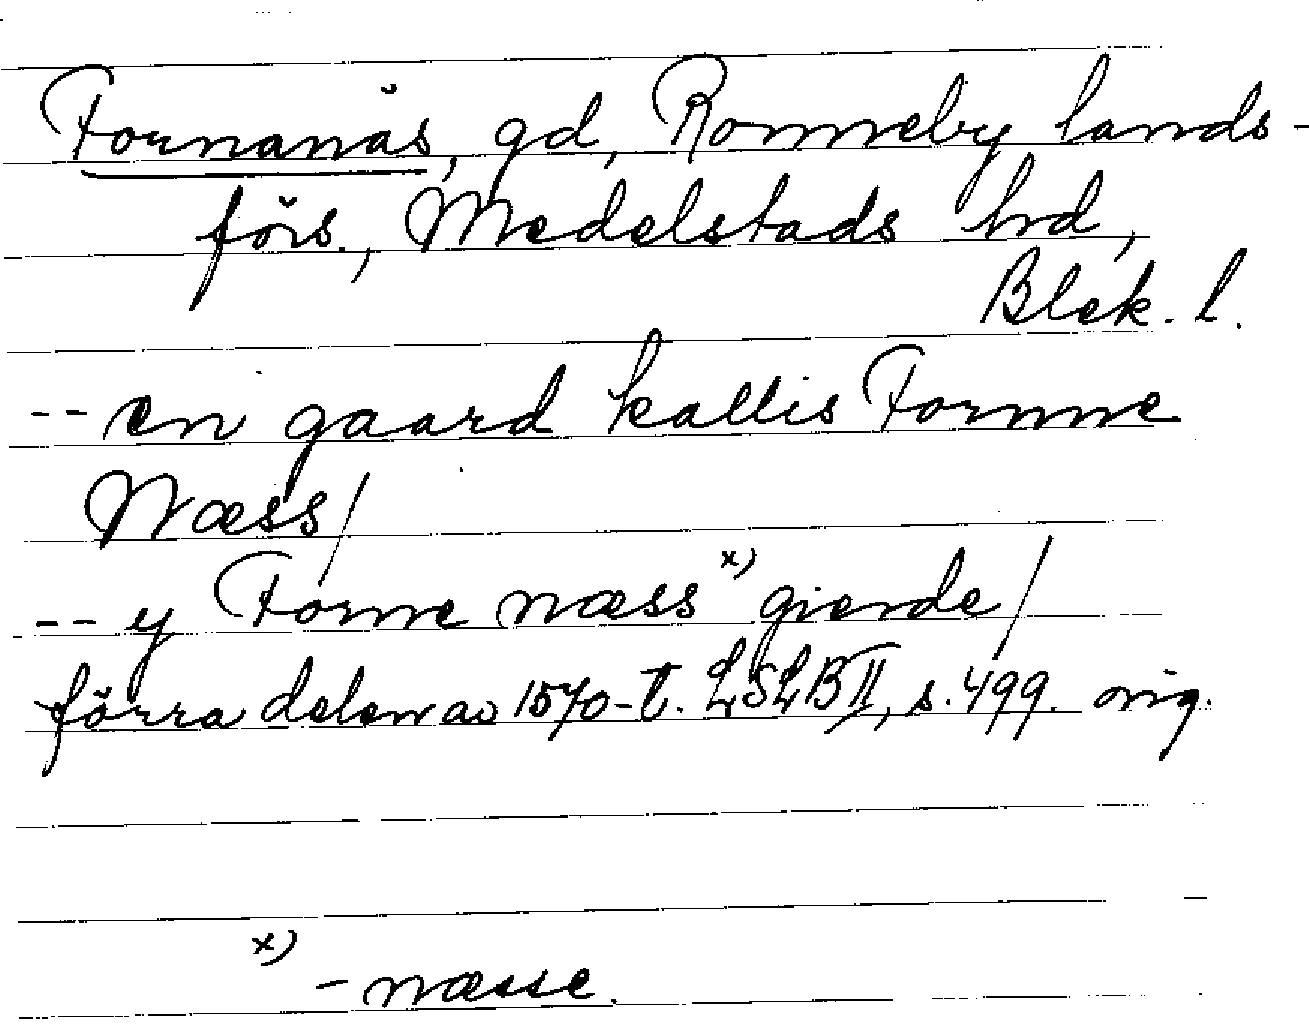 Fornanäs, gd, Ronneby lands-
förs., Medelstads hd,
Blek. l.
-- en gaard kallis Fornne
Næss/
-- y Forne næss x) gierde/
förra delen av 1570-t. LSLB II, s. 499. orig.
x)
- næsse.